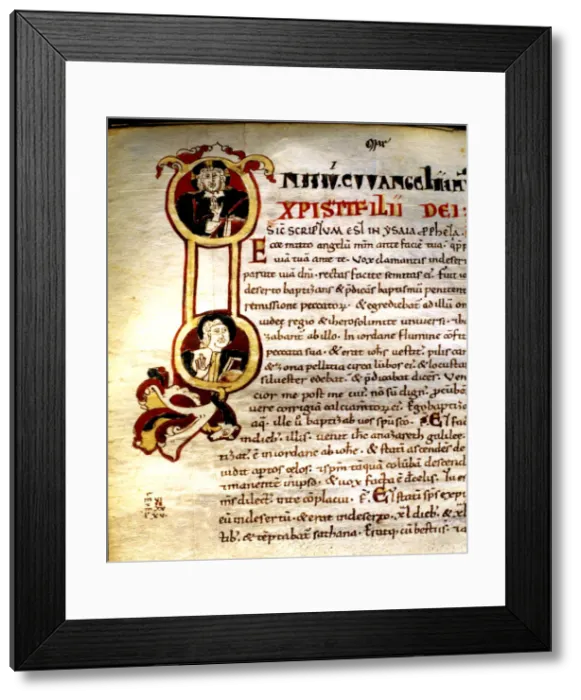 INITIV. EVVANGELII
XPISTI FILII DEI:
SIĒ SCRIPTUM EST IN YSAIA PPHETA.
Ecce mitto angelū mm̄ ante faciē tua. q̄ p̄p
uiā tuā ante te. Vox clamantis indeser
parate uiā dn̄i. rectas facite semitas ei. fuit io
deserto baptizans & p̄dicās baptismū penitent
remissione peccator. & egrediebat ad illū om
iudee regio & iherosolimite universi. & ba
zabant ab illo. in iordane flumine cōfit
peccata sua. & erat iohs uestit. pilis car
& zona pellitia circa lūbos ei. & locustas
silvester edebat. & p̄dicabat dicēs. Ven
cior me post me cui. nō sū dign. pcūbē
uere corrigiā calciamtor ei. Ego baptiza
aq. ille ū baptizab uos sp̄u sc̄o. Et fac
indieb. illis. uenit ihc anazareth galilee
tizat. ē in iordane ab iohe. & statī ascendēs de
uidit aptos celos. & sp̄m taquā colūbā descend
& manentē inip̄so. & uox facta ē decelis. tu es
ms dilect. in te cōplacui. Et statī sp̄s exp
eū indesertū. & erat indeserto. xl dieb. & xl
tib. & tēptabat sathana. Eratq. cū bestiis.